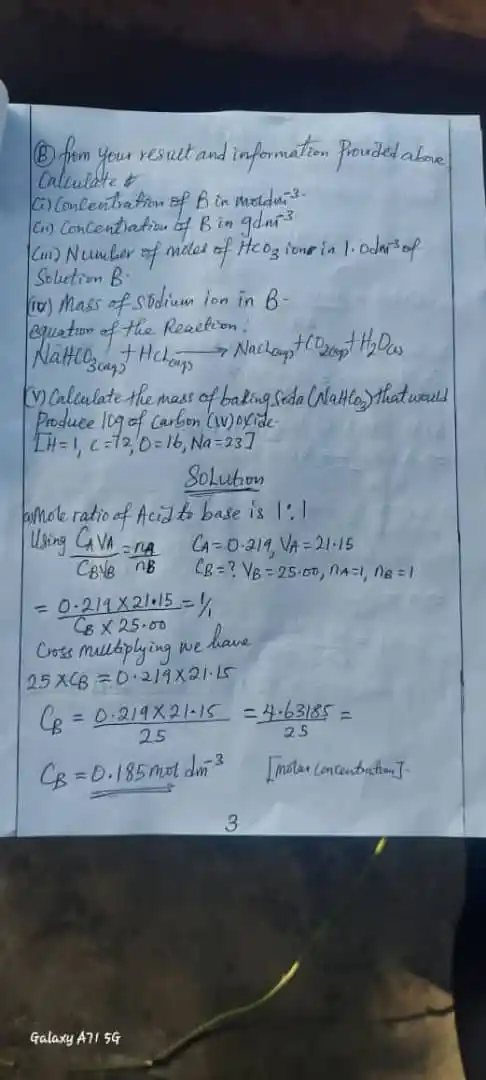 (B) from your result and information Provided above
Calculate
(i) Concentration of B in moldm⁻³.
(ii) Concentration of B in gdm⁻³
(iii) Number of moles of HCO₃ ions in 1.0dm³ of
Solution B.
(iv) Mass of sodium ion in B-
equation of the Reaction:
NaHCO₃(aq) + HCl(aq) → NaCl(aq) + CO₂(g) + H₂O(l)
(v) Calculate the mass of baking Soda (NaHCO₃) that would
Produce 10g of Carbon (iv) oxide.
[H=1, C=12, O=16, Na=23]
Solution
a) Mole ratio of Acid to base is 1:1
Using CAVA/CBVB = nA/nB CA=0.219, VA=21.15
CB=? VB=25.00, nA=1, nB=1
= 0.219×21.15/CB×25.00 = 1/1
Cross multiplying we have
25×CB = 0.219×21.15
CB = 0.219×21.15/25 = 4.63185/25 =
CB = 0.185mol dm⁻³ [molar Concentration].
3
Galaxy A71 5G